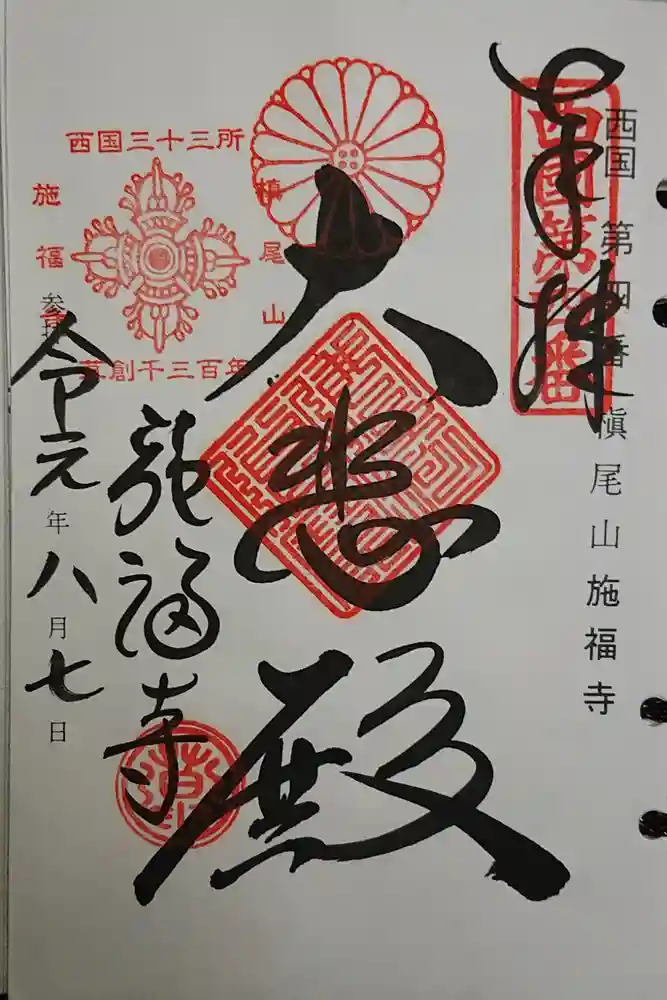 西国 第四番 槇尾山 施福寺
奉拝
西國第四番
大悲殿
西国三十三所
槇尾山
施福寺
草創千三百年
施福寺
参拝
令元年八月七日